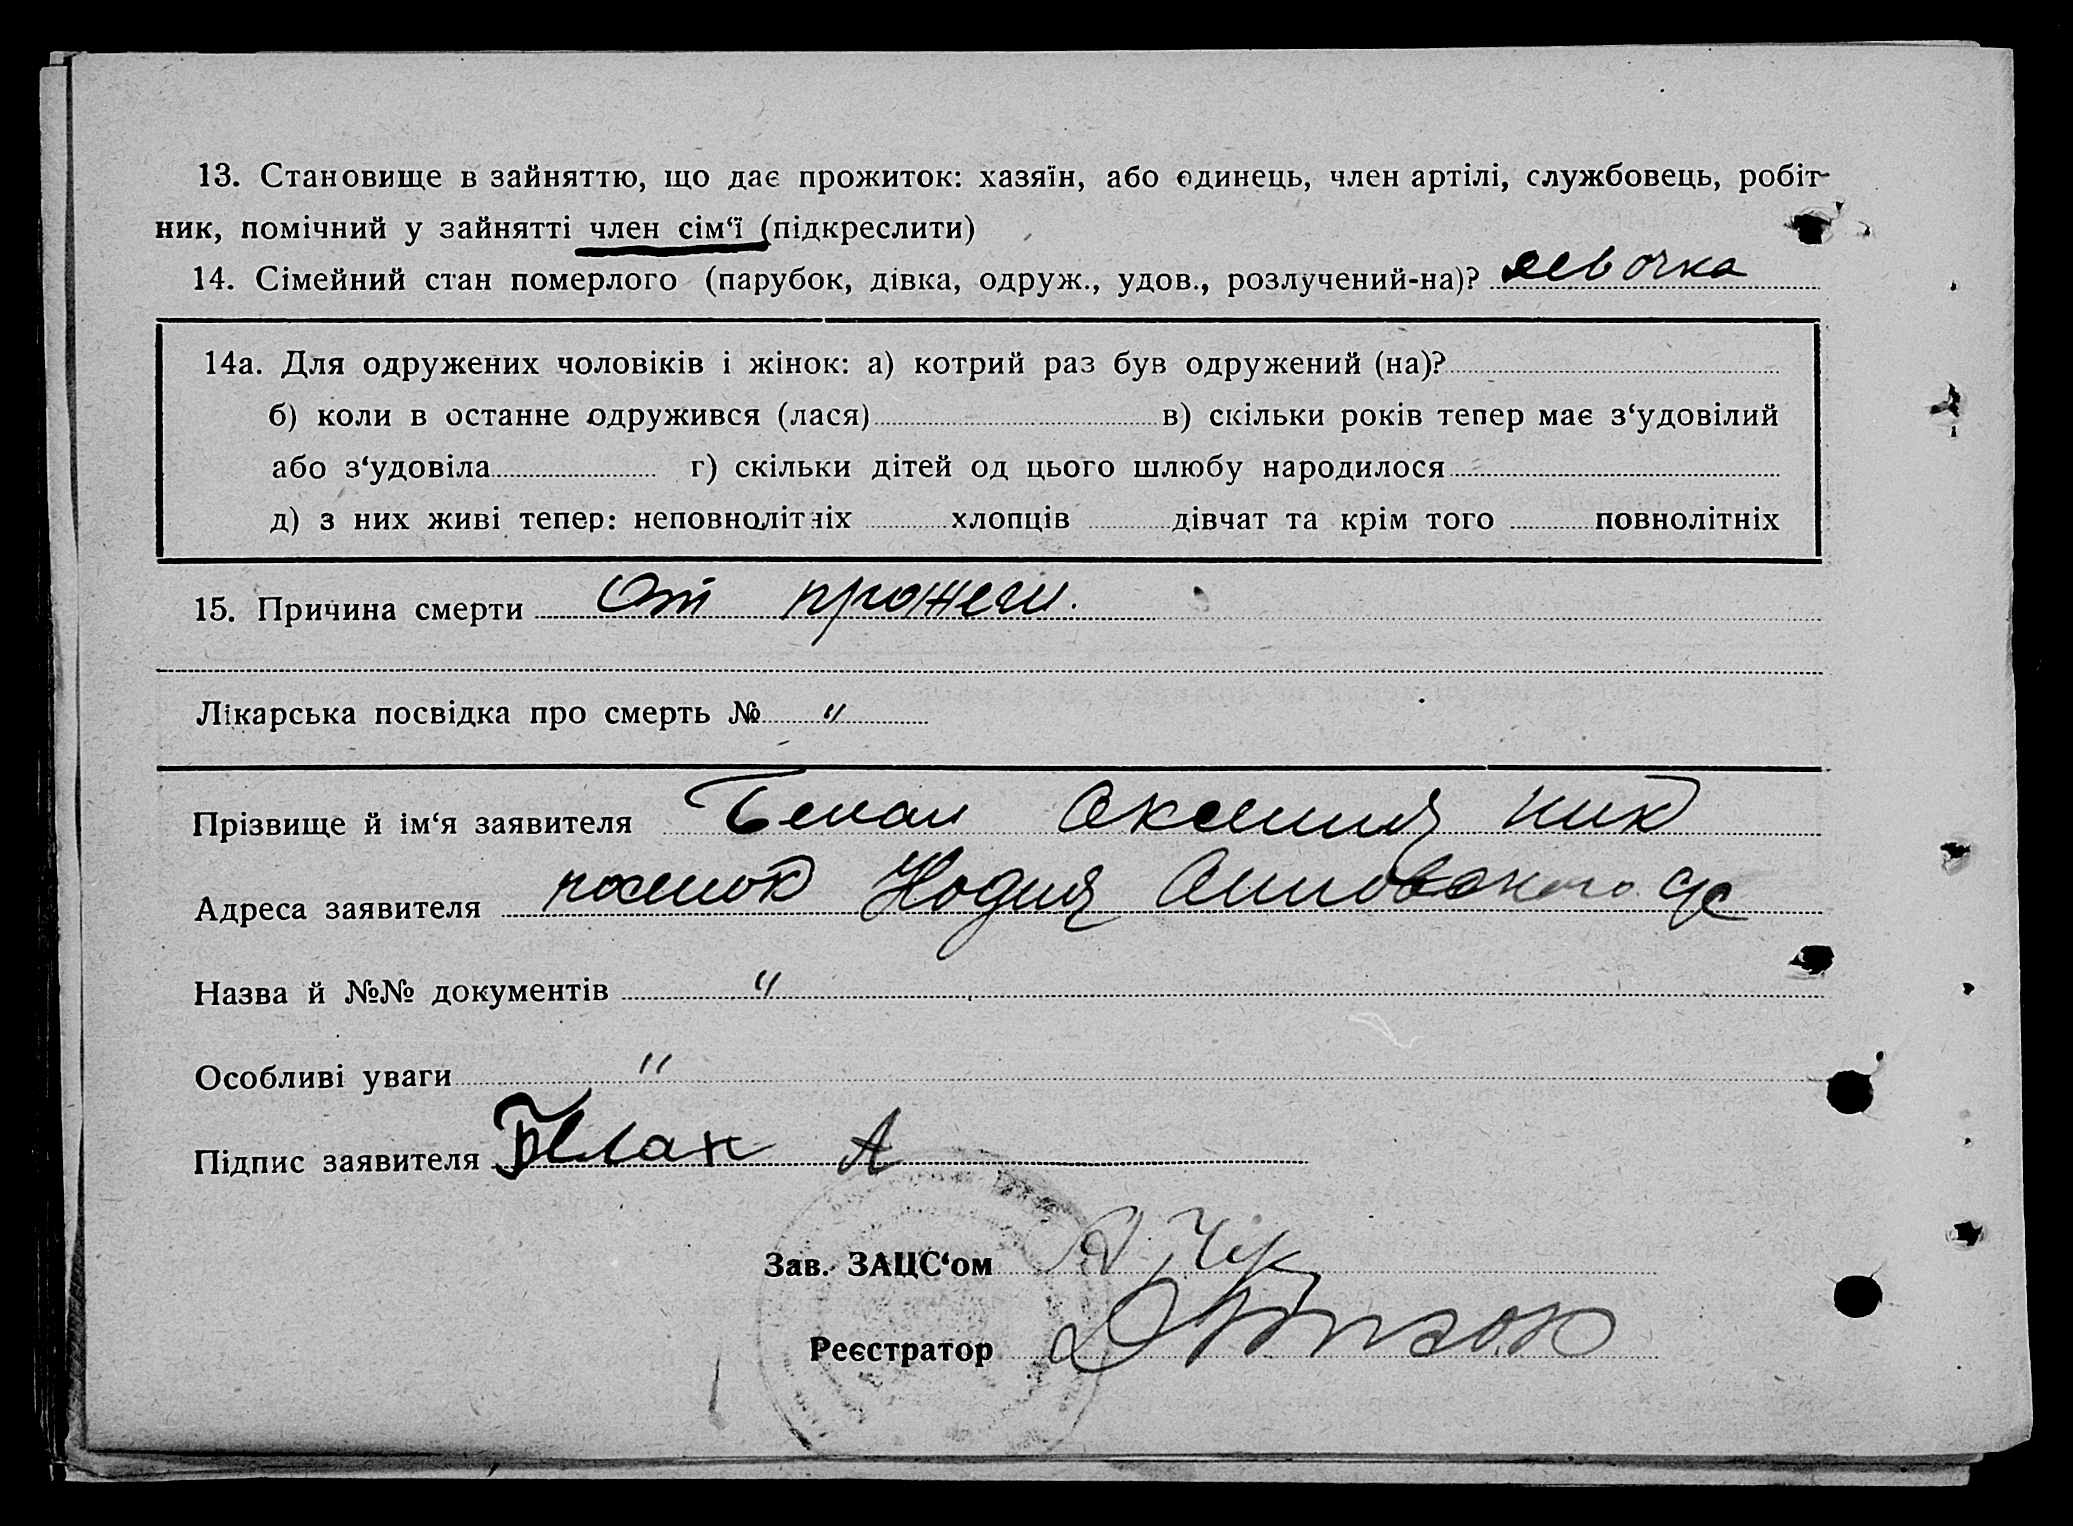 13. Становище в зайняттю, що дає прожиток: хазяїн, або одинець, член артілі, службовець, робіт-
ник, помічний у зайнятті член сім‘ї (підкреслити)
14. Сімейний стан померлого (парубок, дівка, одруж., удов., розлучений-на)? девочка
14а. Для одружених чоловіків і жінок: а) котрий раз був одружений (на)?
б) коли в останне одружився (лася) в) скільки років тепер має з‘удовілий
або з‘удовіла г) скільки дітей од цього шлюбу народилося
д) з них живі тепер: неповнолітніх хлопців дівчат та крім того повнолітніх
15. Причина смерти От
Лікарська посвідка про смерть № "
Прізвище й ім‘я заявителя Белан Аксиния Ник
Адреса заявителя поселок Надия
Назва й №№ документів "
Особливі уваги "
Підпис заявителя Белан А
Зав. ЗАЦС‘ом
Реєстратор